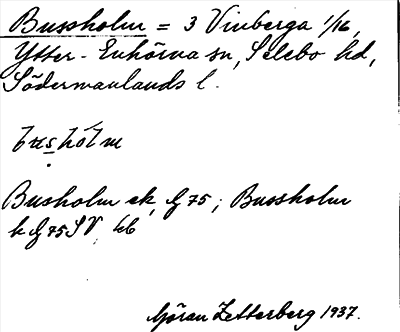 Bussholm = 3 Vinberga 1/16,
Ytter-Enhörna sn, Selebo hd,
Södermanlands l.
bushólm
Busholm ek, G 75; Bussholm
k G 75 SV kb
Göran Zetterberg 1937.